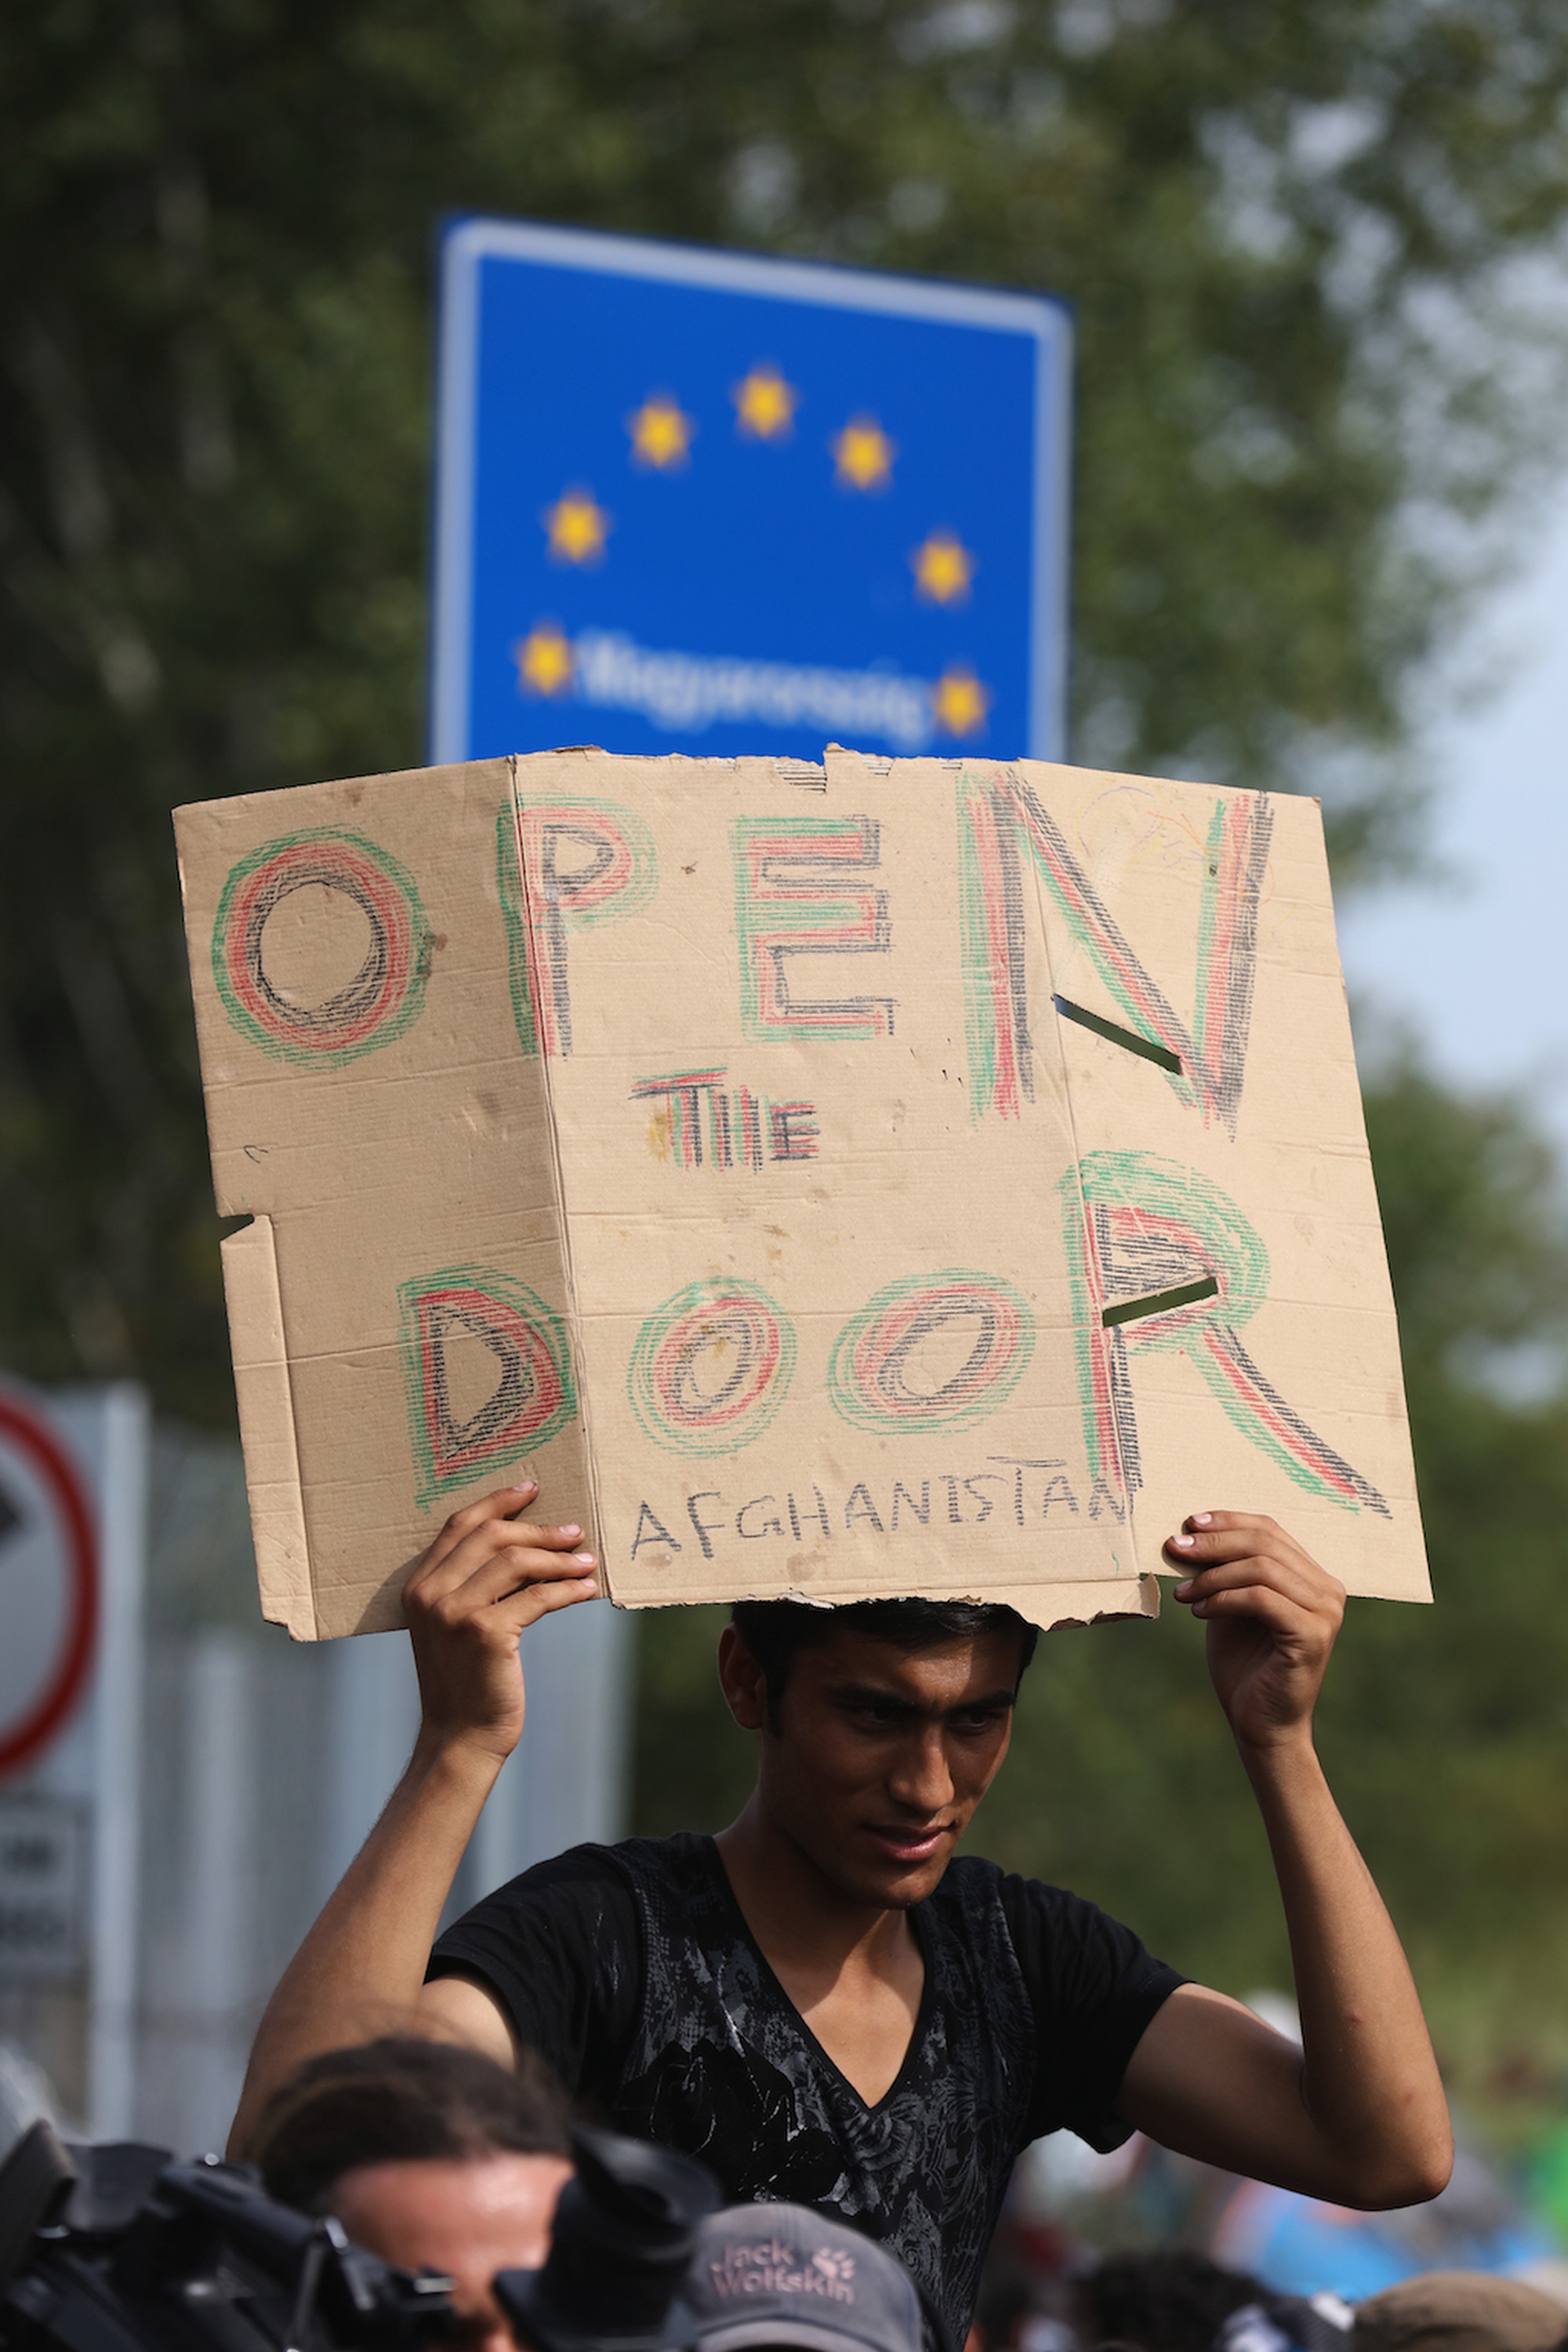 Magyarország
OPEN
THE
DOOR
AFGHANISTAN
Jack
Wolfskin